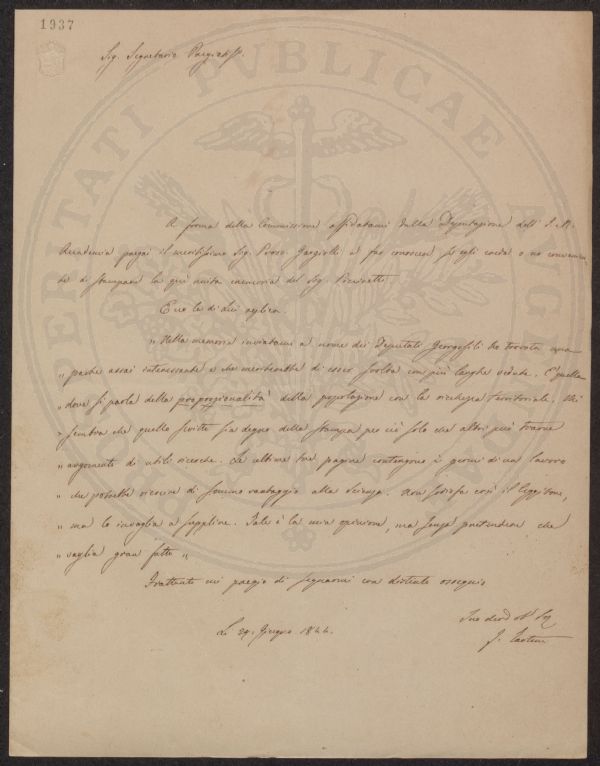 1937
Sig. Segretario Pregiatiss.
A forma della Commissione affidatami dalla Deputazione dell' I. R.
Accademia pregai il meritissimo Sig. Prove. Gargiolli a far conoscere se egli creda o no convenien
te di stampare la qui unita memoria del Sig.
Ecco la di Lui replica.
" Nella memoria inviatami a nome dei Deputati Georgofili ho trovata una
" parte assai interessante e che meriterebbe di essere svolta con più larghe vedute. E' quella
" dove si parla della proporzionalità della popolazione con la ricchezza territoriale. Mi
" sembra che quello scritto sia degno della stampa per ciò solo che altri può trarne
" argomento di utili ricerche. Le ultime tre pagine contengono i germi di un lavoro
" che potrebbe riescire di sommo vantaggio alla scienza. Non sodisfa così il leggitore,
" ma lo invoglia a supplire. Tale è la mia opinione, ma senza pretendere che
" vaglia gran fatto "
Frattanto mi pregio di segnarmi con distinto ossequio
Li 29. Giugno 1844.
Suo dev
PROSPERITATI PUBLICAE AUG